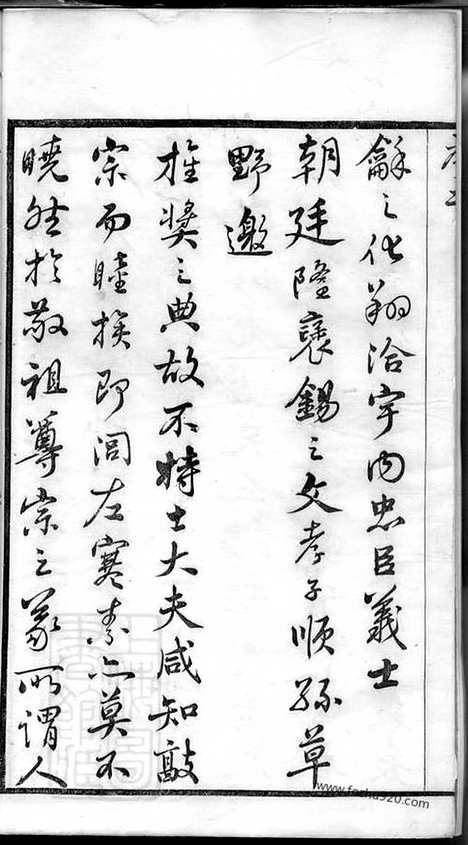 龢之化翔洽宇内忠臣義士
朝廷隆褒錫之文孝子順孫草
野邀
推奬之典故不特士大夫咸知敦
宗而睦族即閭左寒素亦莫不
曉然於敬祖尊宗之義所謂人
www.foshu920.com